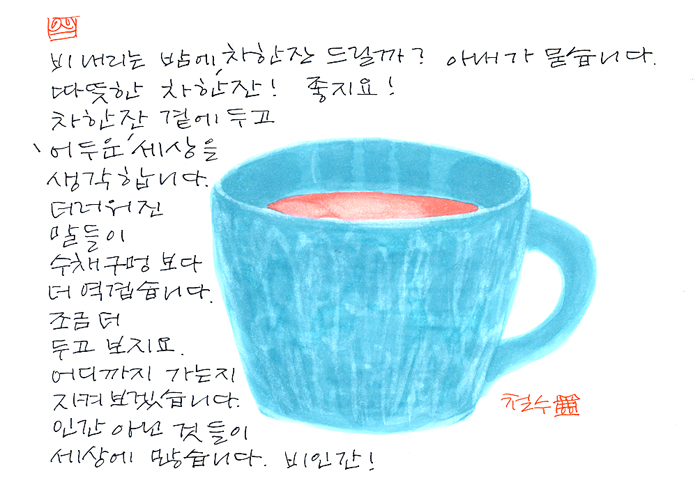 비내리는 밤에 차한잔 드릴까? 아내가 묻습니다.
따뜻한 차한잔! 좋지요!
차한잔 곁에 두고
어두운 세상을
생각합니다.
더러워진
말들이
수채구멍 보다
더 역겹습니다.
조금 더
두고 보지요.
어디까지 가는지
지켜보겠습니다.
인간 아닌 것들이
세상에 많습니다. 비인간!
철수